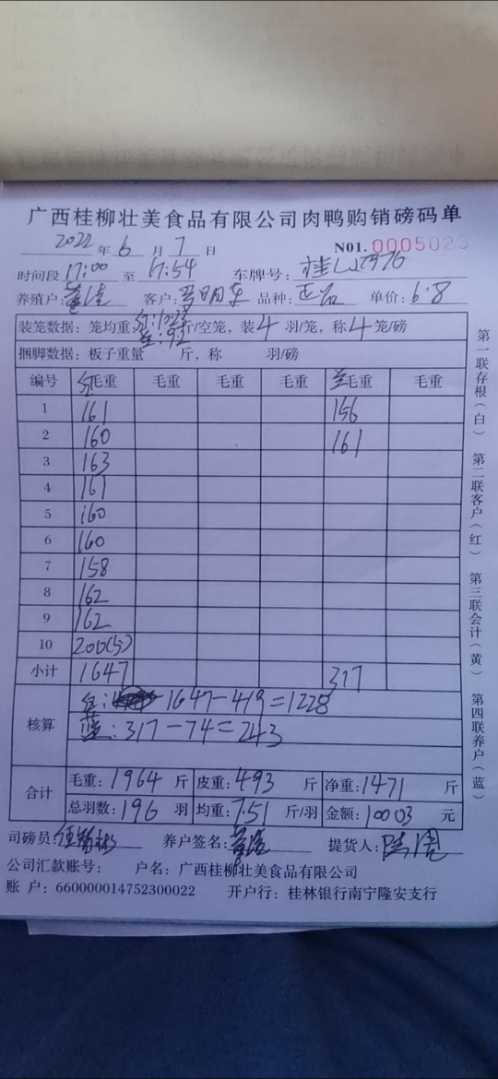 广西桂柳壮美食品有限公司肉鸭购销磅码单
2022年6月7日 NO1.0005023
时间段17:00至17:54 车牌号:桂
养殖户: 客户: 品种:正石 单价:6.8
装笼数据:笼均重 斤/空笼,装4羽/笼,称4笼/磅
捆脚数据:板子重量 斤,称 羽/磅
编号 红毛重 毛重 毛重 毛重 兰毛重 毛重
1 161 156
2 160 161
3 163
4 161
5 160
6 160
7 158
8 162
9 162
10 200(5)
小计 1647 317
核算 红: 1647-419=1228
蓝:317-74=243
合计 毛重:1964斤 皮重:493斤 净重:1471斤
总羽数:196羽 均重:7.51斤/羽 金额:10003元
司磅员: 养户签名: 提货人:
公司汇款账号: 户名:广西桂柳壮美食品有限公司
账 户:660000014752300022 开户行:桂林银行南宁隆安支行
第一联存根(白) 第二联客户(红) 第三联会计(黄) 第四联养户(蓝)